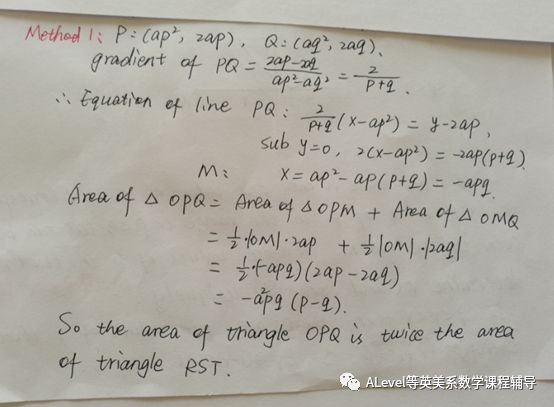 Method 1: P: (ap², 2ap), Q: (aq², 2aq).
gradient of PQ = (2ap-2aq)/(ap²-aq²) = 2/(p+q).
∴ Equation of line PQ: 2/(p+q) (x-ap²) = y-2ap,
sub y=0, 2(x-ap²) = -2ap(p+q)
M: x = ap²-ap(p+q) = -apq.
Area of △OPQ = Area of △OPM + Area of △OMQ
= ½·|OM|·2ap + ½|OM|·|2aq|
= ½·(-apq)(2ap-2aq)
= -a²pq (p-q).
So the area of triangle OPQ is twice the area
of triangle RST.
ALevel等英美系数学课程辅导